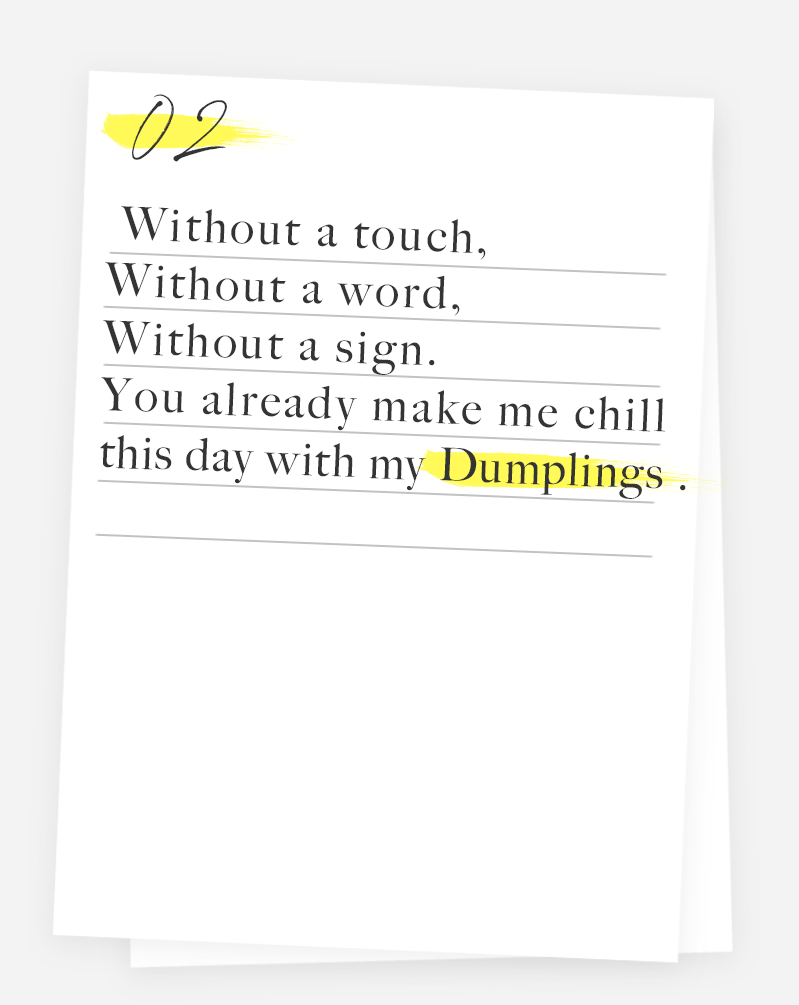 02
Without a touch,
Without a word,
Without a sign.
You already make me chill
this day with my Dumplings .